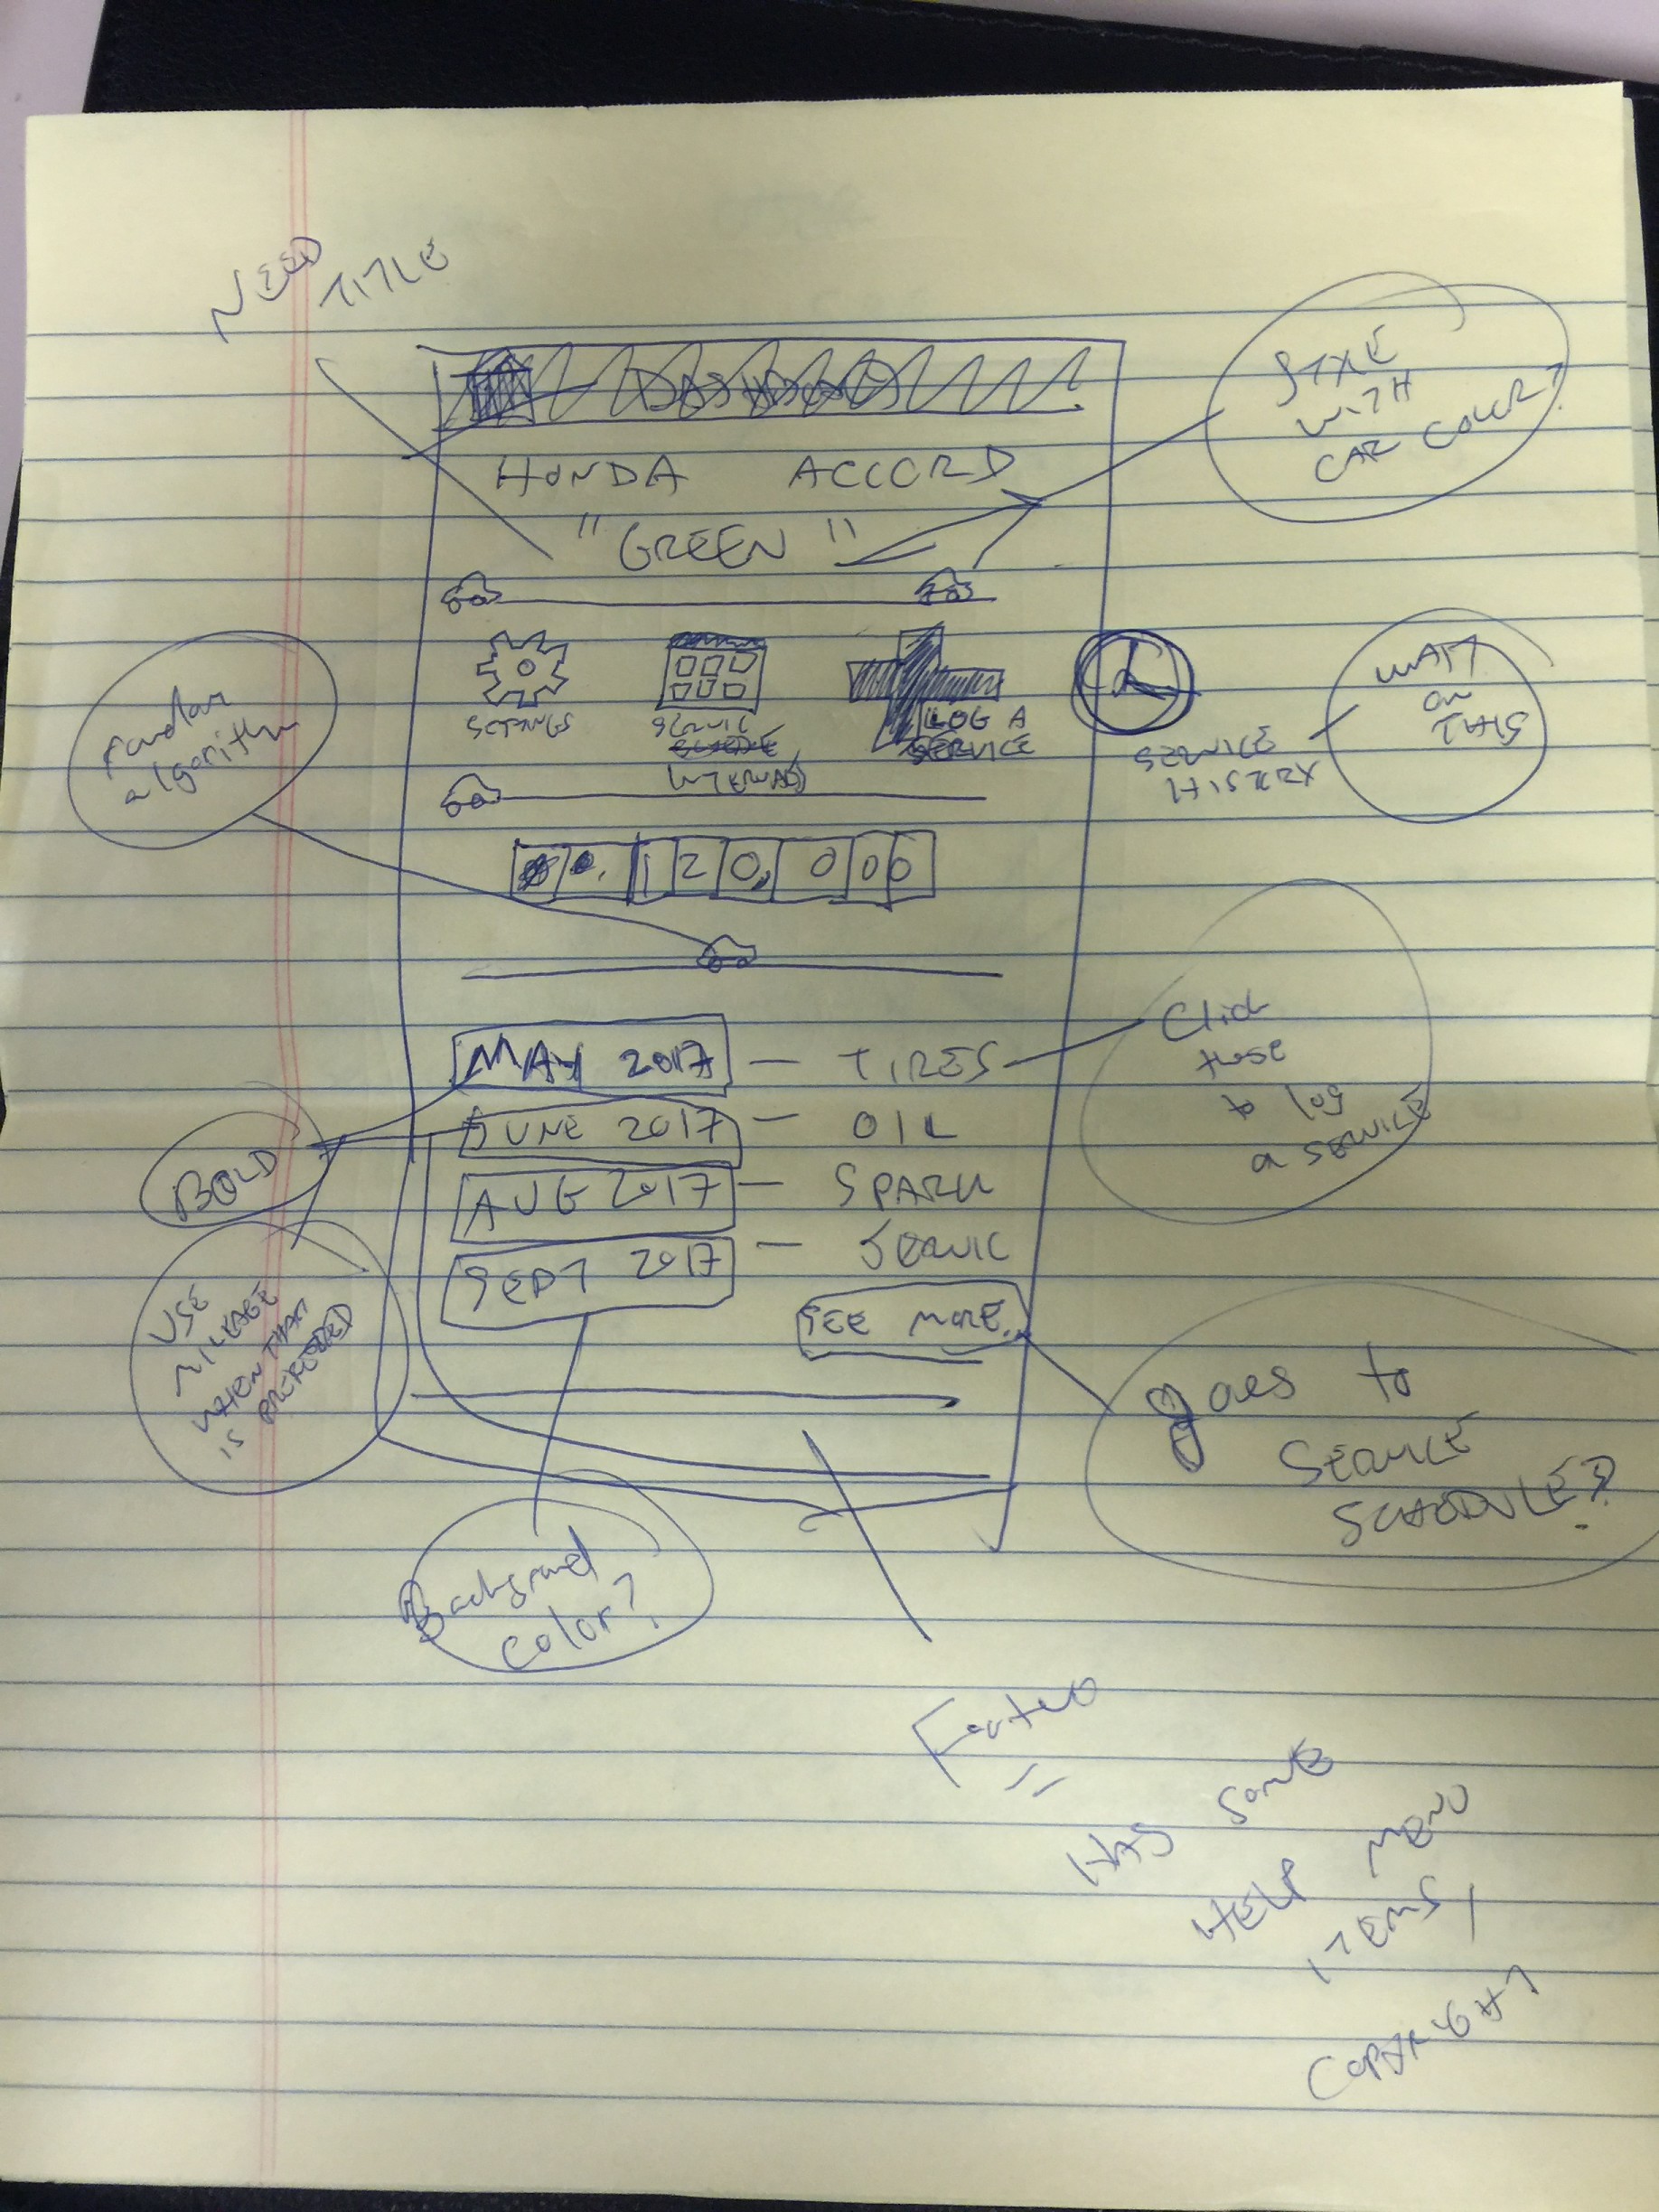 NEED
TITLE
DASHBOARD
HONDA ACCORD
"GREEN"
WITH
CAR COLOR?
SETTINGS
SERVIC
INTERVALS
LOG A
SERVICE
SERVICE
HISTORY
WAIT
on
THIS
random
algorithm
120,000
MAY 2017 — TIRES
JUNE 2017 — OIL
AUG 2017 — SPARK
SEPT 2017 — SERVIC
SEE MORE..
Click
these
to log
a SERVICE
BOLD
USE
MILEAGE
WHEN THAT
IS PREFERRED
goes to
SERVICE
SCHEDULE?
Background
color?
Footer
=
HAS SOME
HELP MENU
ITEMS,
COPYRIGHT